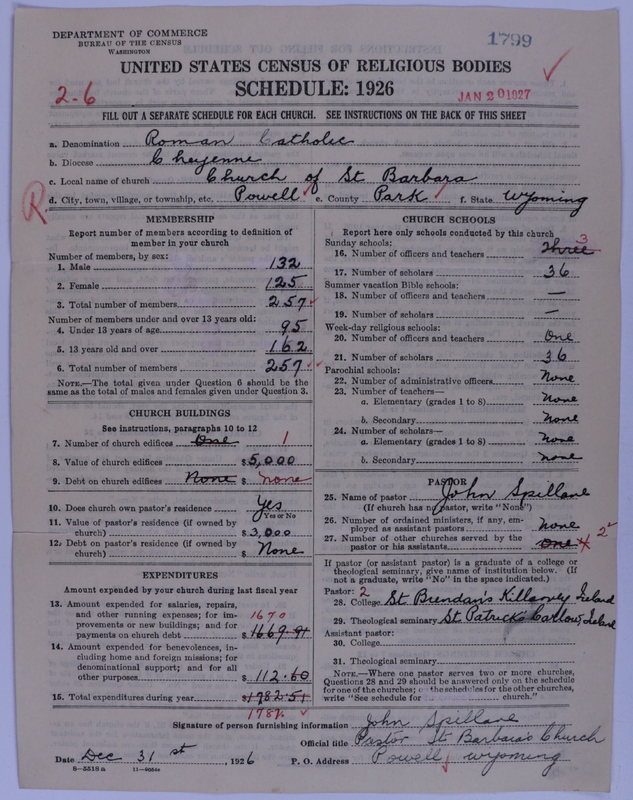 DEPARTMENT OF COMMERCE
BUREAU OF THE CENSUS
WASHINGTON
1799
UNITED STATES CENSUS OF RELIGIOUS BODIES
SCHEDULE: 1926
2-6
JAN 20 1927
FILL OUT A SEPARATE SCHEDULE FOR EACH CHURCH. SEE INSTRUCTIONS ON THE BACK OF THIS SHEET
a. Denomination Roman Catholic
b. Diocese Cheyenne
c. Local name of church Church of St Barbara
R d. City, town, village, or township, etc. Powell e. County Park f. State Wyoming
MEMBERSHIP
Report number of members according to definition of
member in your church
Number of members, by sex:
1. Male 132
2. Female 125
3. Total number of members 257
Number of members under and over 13 years old:
4. Under 13 years of age 95
5. 13 years old and over 162
6. Total number of members 257
NOTE.—The total given under Question 6 should be the
same as the total of males and females given under Question 3.
CHURCH BUILDINGS
See instructions, paragraphs 10 to 12
7. Number of church edifices One 1
8. Value of church edifices $5,000
9. Debt on church edifices None $ none
10. Does church own pastor's residence Yes
Yes or No
11. Value of pastor's residence (if owned by
church) $3,000
12. Debt on pastor's residence (if owned by
church) $ None
EXPENDITURES
Amount expended by your church during last fiscal year
13. Amount expended for salaries, repairs,
and other running expenses; for im-
provements or new buildings; and for 1670
payments on church debt $1669.91
14. Amount expended for benevolences, in-
cluding home and foreign missions; for
denominational support; and for all
other purposes $112.60
15. Total expenditures during year $1782.51
178
CHURCH SCHOOLS
Report here only schools conducted by this church
Sunday schools: 3
16. Number of officers and teachers Three
17. Number of scholars 36
Summer vacation Bible schools:
18. Number of officers and teachers —
19. Number of scholars —
Week-day religious schools:
20. Number of officers and teachers One
21. Number of scholars 36
Parochial schools:
22. Number of administrative officers None
23. Number of teachers—
a. Elementary (grades 1 to 8) None
b. Secondary None
24. Number of scholars—
a. Elementary (grades 1 to 8) None
b. Secondary none
PASTOR
25. Name of pastor John Spillane
(If church has no pastor, write "None")
26. Number of ordained ministers, if any, em-
ployed as assistant pastors none
27. Number of other churches served by the
pastor or his assistants One 4
If pastor (or assistant pastor) is a graduate of a college or
theological seminary, give name of institution below. (If
not a graduate, write "No" in the space indicated.)
Pastor: 2
28. College St. Brendan's Killarney Ireland
29. Theological seminary St Patricks Carlow, Ireland
Assistant pastor:
30. College
31. Theological seminary
NOTE.—Where one pastor serves two or more churches,
Questions 28 and 29 should be answered only on the schedule
for one of the churches; on the schedules for the other churches,
write "See schedule for church."
Signature of person furnishing information John Spillane
Official title Pastor St Barbara's Church
Date Dec 31st, 1926 P. O. Address Powell, Wyoming
8-5518a 11-9056a